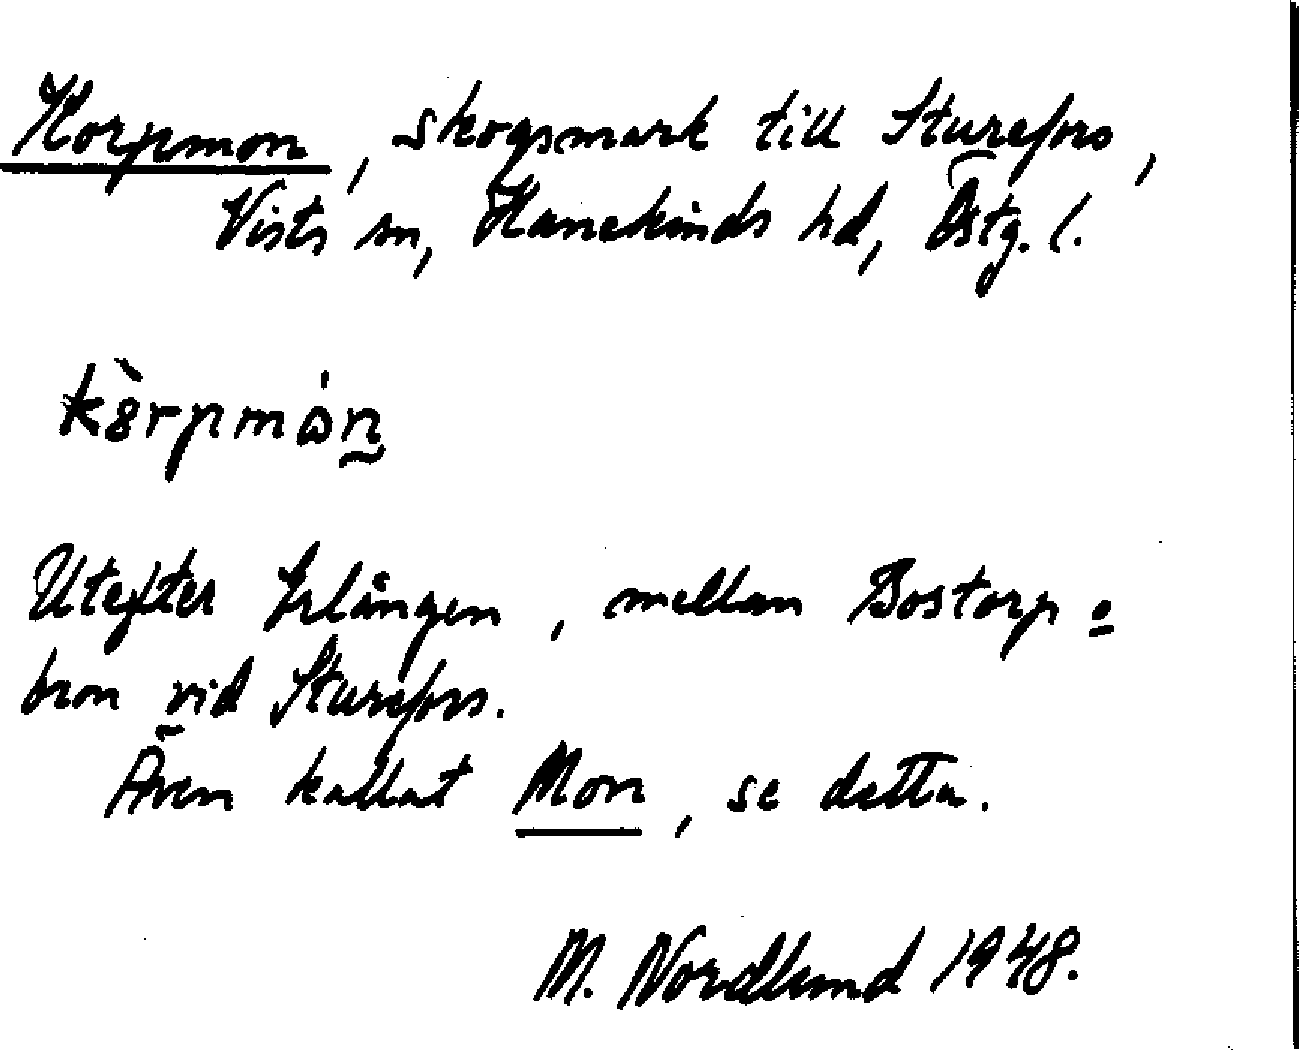 Korpmon, skogsmark till Sturefors,
Vists sn, Hanekinds hd, Östg. l.
kòrpmón
Utefter Erlången, mellan Bostorp o
bron vid Sturefors.
Även kallat Mon, se detta.
M. Nordlund 1948.